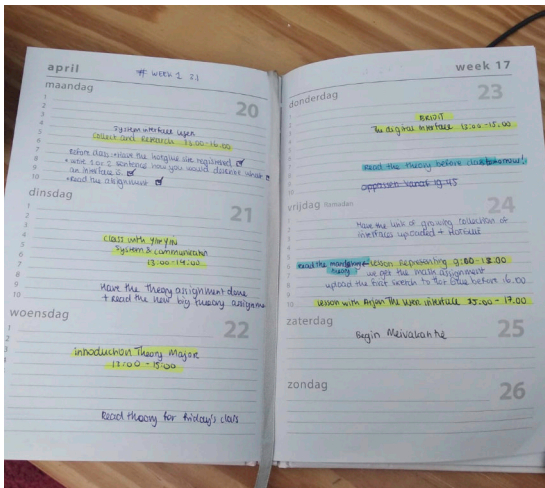 april
# WEEK 1 3.1
maandag
20
System interface Usen
Collect and Research 13:00-16:00
Before class: • Have the hotglue site registered
• write 1 or 2 sentence how you would describe what
an interface is
• Read the assignment
dinsdag
21
Class with Yin Yin
System & communication
13:00-14:00
Have the theory assignment done
+ Read the new big theory assignme
woensdag
22
Introduction Theory Major
13:00 - 15:00
Read theory for friday's class
week 17
donderdag
23
BRIDIT
The digital interface 13:00-15.00
Read the theory before class tomorrow!
oppassen vanaf 19.45
vrijdag Ramadan
24
Have the link of growing collection of
interfaces uploaded + HOTGLUE
Read the
theory
Lesson Representing 9:00 - 12.00
we get the main assignment
upload the first sketch to hot glue before 16.00
Lesson with Arjan The User interface 15.00 - 17.00
zaterdag
25
Begin Meivakantie
zondag
26